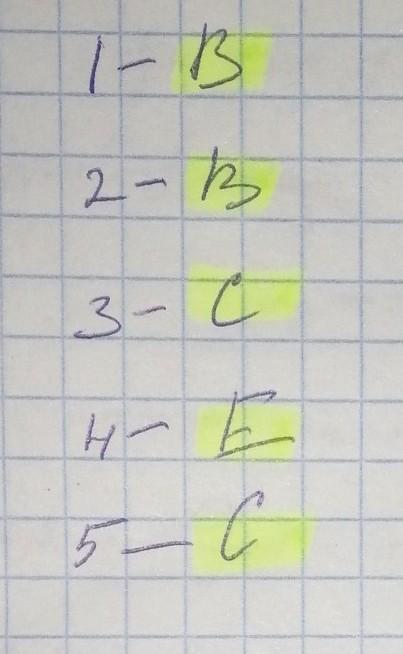 1 - B
2 - B
3 - C
4 - E
5 - C